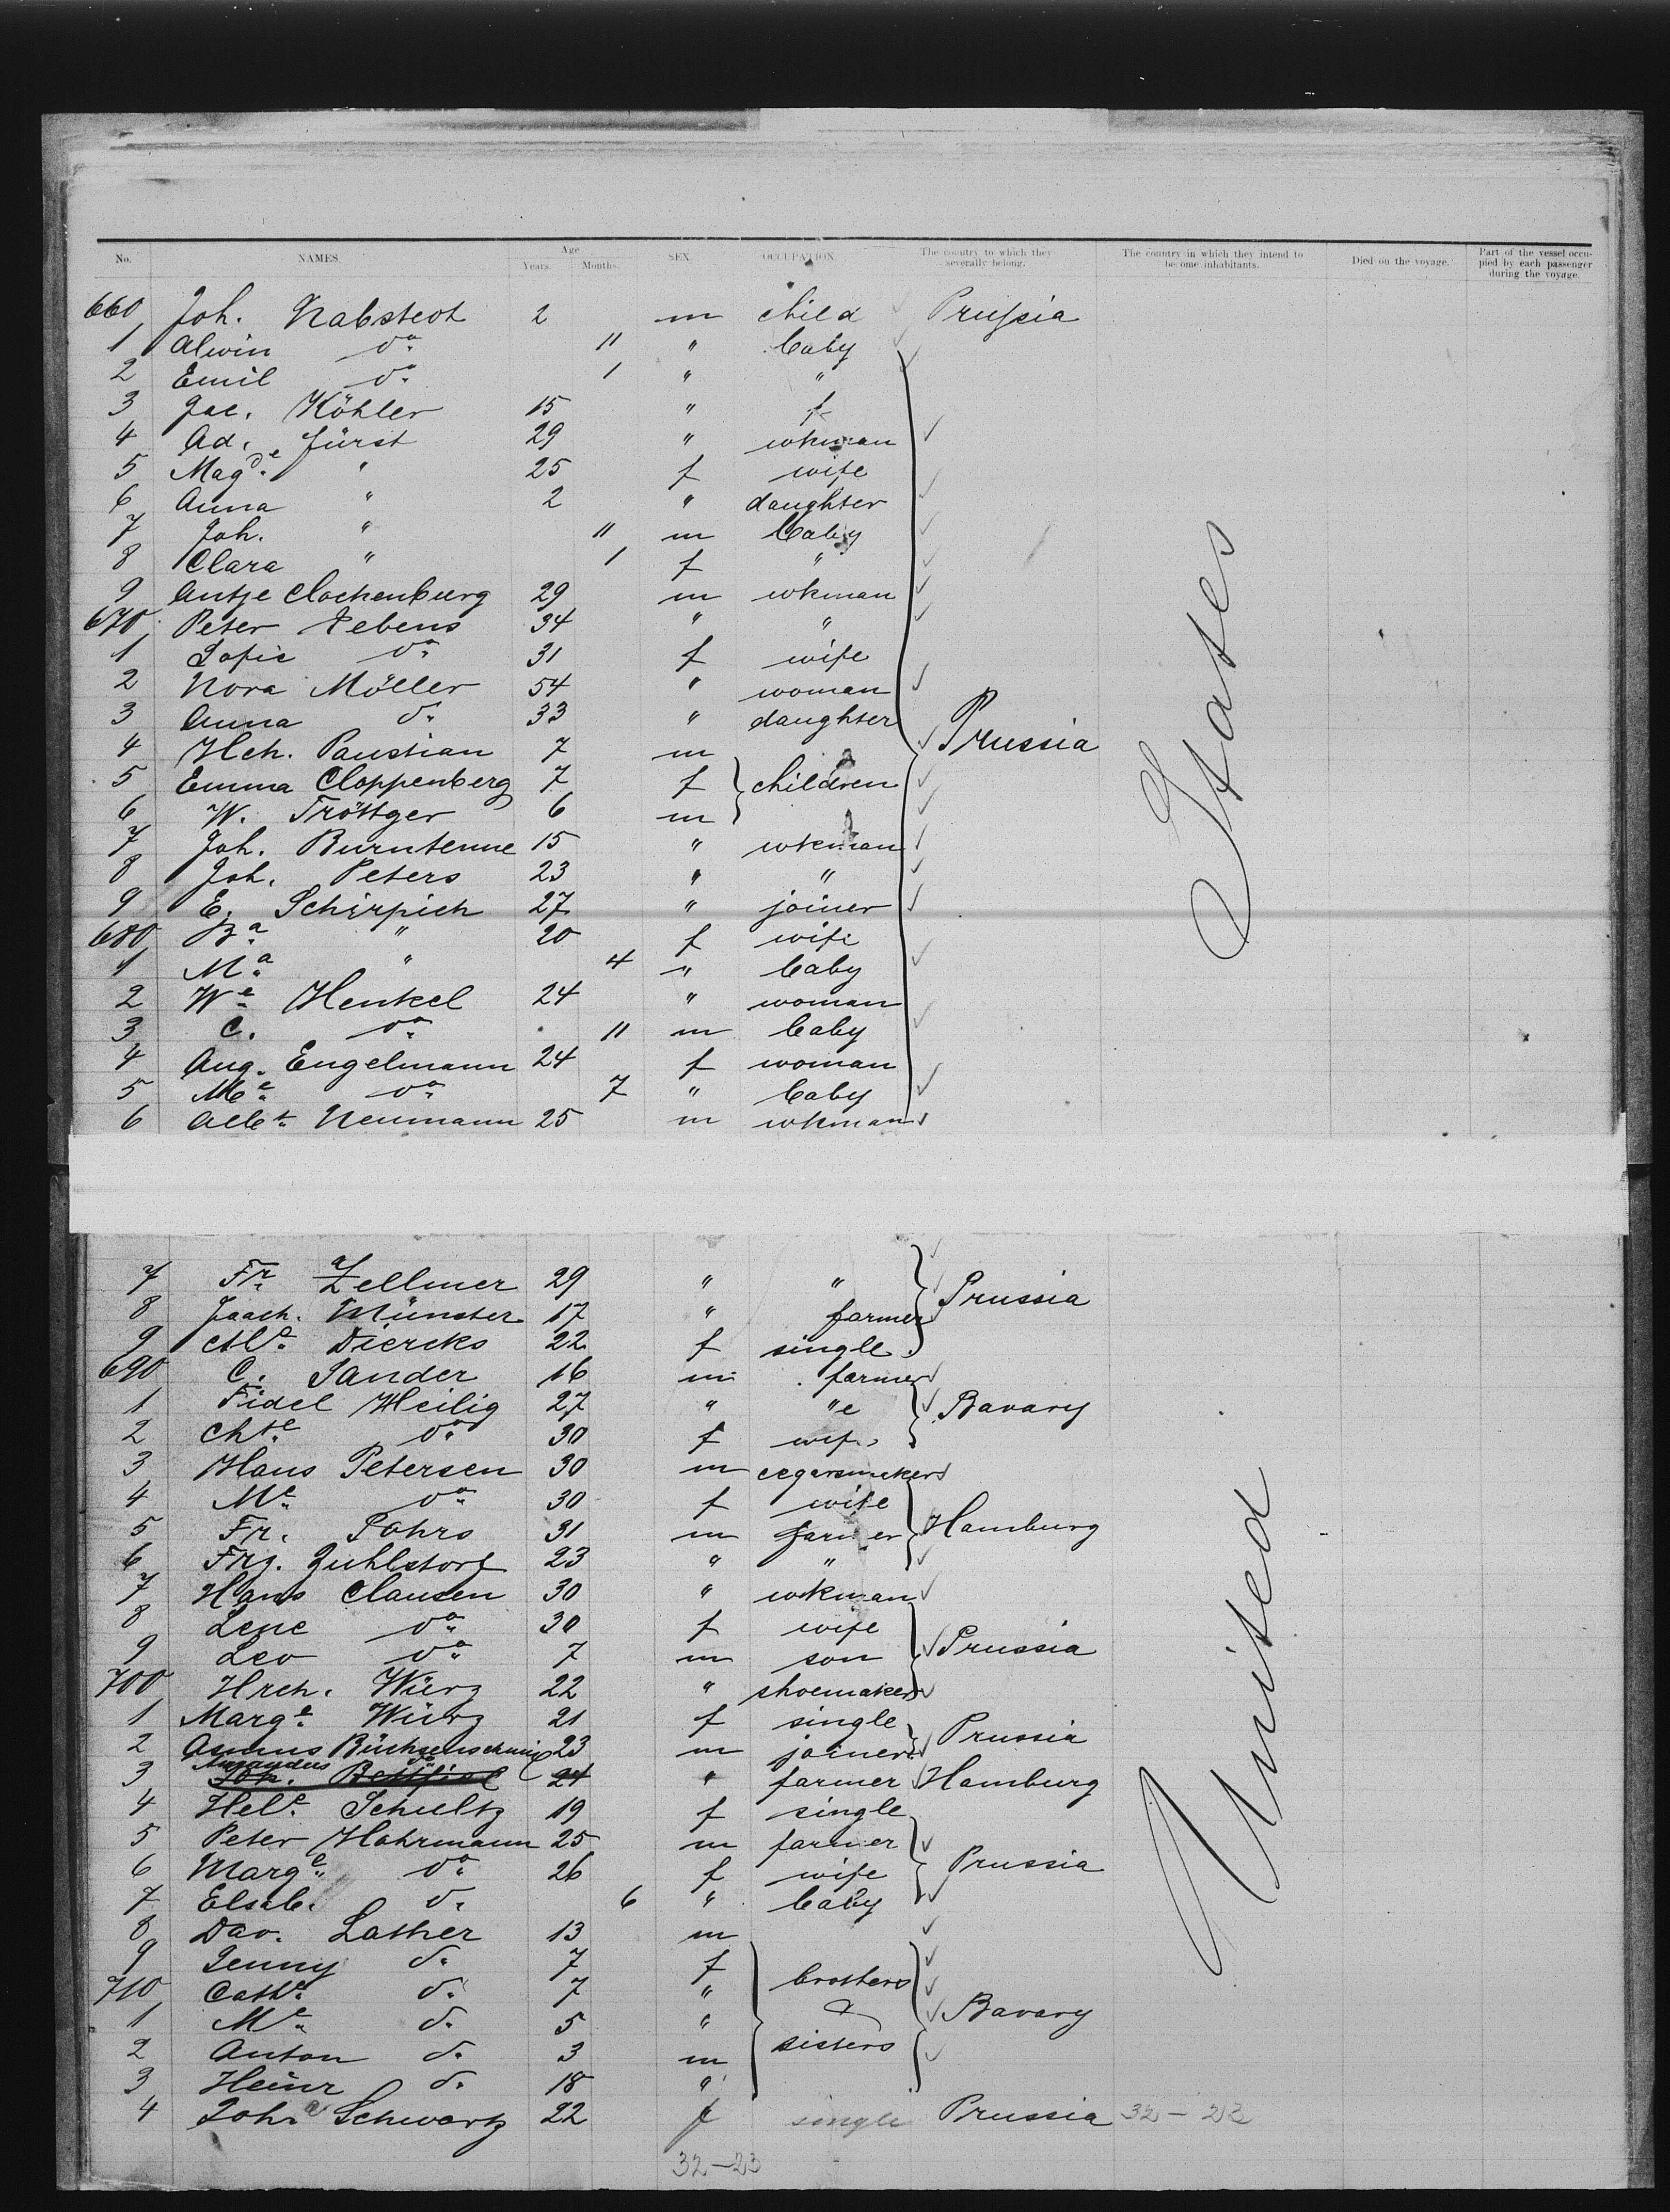 No. NAMES. Age Years. Months. SEX. OCCUPATION The country to which they severally belong. The country in which they intend to become inhabitants. Died on the voyage. Part of the vessel occupied by each passenger during the voyage.
660 Joh. Nabstedt 2 m child Prussia
1 Alwin do. 11 " baby
2 Emil do. 1 " "
3 Jac. Köhler 15 "
4 Ad. Fürst 29 " wkman
5 Magde. " 25 f wife
6 Anna " 2 " daughter
7 Joh. " 11 m baby
8 Clara " 1 f "
9 Antje Clochenburg 29 m wkman
670 Peter Tebens 34 " "
1 Sofie do. 31 f wife
2 Nora Möller 54 " woman
3 Anna do. 33 " daughter
4 Hch. Paustian 7 m Prussia
5 Emma Cloppenberg 7 f children
6 W. Tröttger 6 m
7 Joh. Burntenne 15 " wkman
8 Joh. Peters 23 " "
9 E. Schirpich 27 " joiner
680 Ba. " 20 f wife
1 Ma. " 4 " baby
2 We. Henkel 24 " woman
3 C. do. 11 m baby
4 Aug. Engelmann 24 f woman
5 Me. do. 7 " baby
6 Albt. Neumann 25 m wkman
7 Fr. Zellmer 29 " " Prussia
8 Joach. Münster 17 " farmer
9 Ale. Diercks 22 f single
690 C. Sander 16 m farmer
1 Fidel Heilig 27 " " Bavary
2 Chte. do. 30 f wife
3 Hans Petersen 30 m cegarsmaker
4 Me. do. 30 f wife
5 Fr. Pohrs 31 m farmer Hamburg
6 Frz. Zuhlstorf 23 " "
7 Hans Clausen 30 " wkman
8 Lene do. 30 f wife
9 Leo do. 7 m son Prussia
700 Hrch. Würz 22 " shoemaker
1 Marge. Würz 21 f single
2 Asmus Büchsenschmi 23 m joiner Prussia
3 Amandus do. 24 " farmer Hamburg
4 Hele. Schultz 19 f single
5 Peter Hohrmann 25 m farmer
6 Marge. do. 26 f wife Prussia
7 Elsab. do. 6 " baby
8 Dav. Lather 13 m
9 Jenny do. 7 f brothers
710 Cathe. do. 7 " &
1 Me. do. 5 " Bavary
2 Anton do. 3 m sisters
3 Heinr do. 18 "
4 Joha Schwartz 22 f single Prussia 32-23
32-23
United States